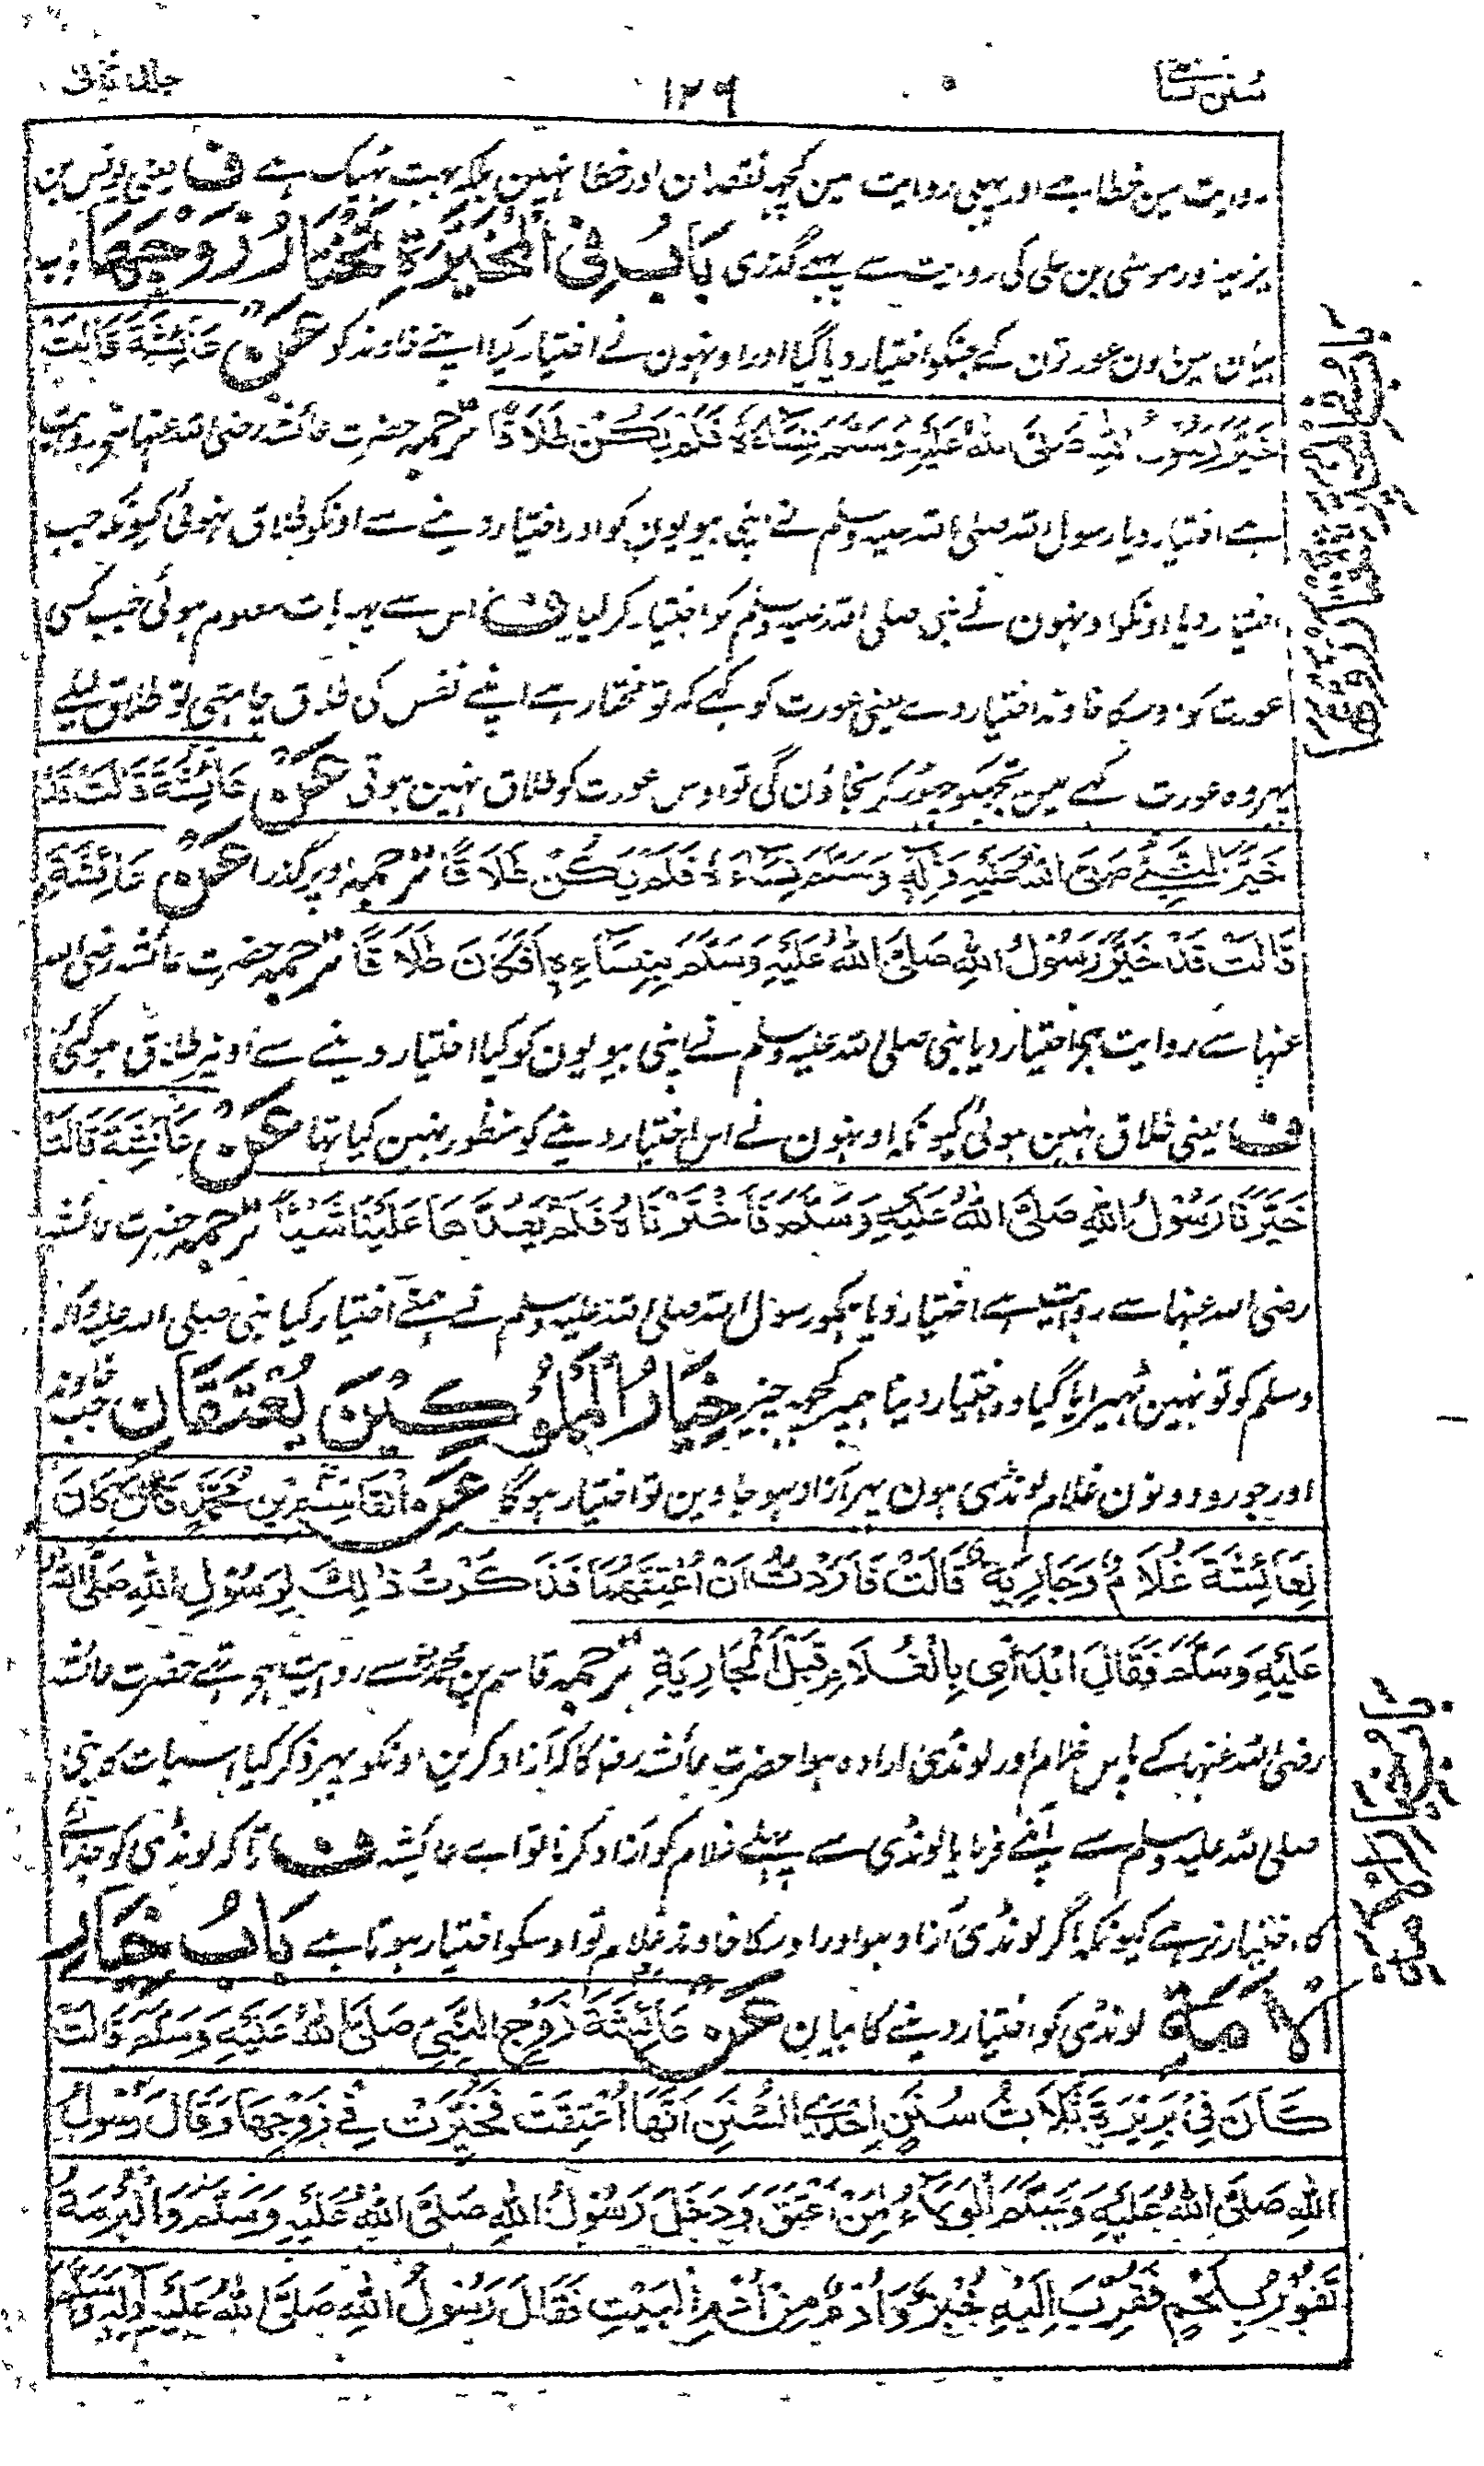 سنن نسائی
۱۲۶
جلد ثانی
روایت مین خطا ہے اور پہلی روایت مین کچہ نقصان اور خطا نہین بلکہ بہت ٹہیک ہے ف یعنی یونس بن
یزید اور موسٰی بن علی کی روایت سے پہلے گذری بَابُ فِی الْمُخَیَّرَۃِ تَخْتَارُ زَوْجَهَا باب
بیان مین اون عورتون کے جنکو اختیار دیا گیا اور اونہون نے اختیار کیا اپنے خاوند کو عَنْ عَائِشَةَ قَالَتْ
خَيَّرَ رَسُوْلُ اللهِ صَلَّى اللهُ عَلَيْهِ وَسَلَّمَ نِسَاءَهُ فَلَمْ يَكُنْ طَلَاقًا ترجمہ حضرت عائشہ رضی اللہ عنہا سے روایت
ہے اختیار دیا رسول اللہ صلی اللہ علیہ وسلم نے اپنی بیویون کو اور اختیار دینے سے اونکو طلاق نہوئی کیونکہ جب
اختیار دیا اونکو اونہون نے نبی صلی اللہ علیہ وسلم کو اختیار کر لیا ف اس سے یہہ بات معلوم ہوئی جب کسی
عورت کو اوسکا خاوند اختیار دے یعنی عورت کو کہے کہ تو مختار ہے اپنے نفس کی طلاق چاہتی تو طلاق لیلے
پہر وہ عورت کہے مین تجہکو چہوڑ کر نجاؤن گی تو اوس عورت کو طلاق نہین ہوتی عَنْ عَائِشَةَ قَالَتْ قَدْ
خَيَّرَ النَّبِيُّ صَلَّى اللهُ عَلَيْهِ وَاٰلِهٖ وَسَلَّمَ نِسَاءَهُ فَلَمْ يَكُنْ طَلَاقًا ترجمہ اوپر گذرا عَنْ عَائِشَةَ
قَالَتْ قَدْ خَيَّرَ رَسُوْلُ اللهِ صَلَّى اللهُ عَلَيْهِ وَسَلَّمَ نِسَاءَهٗ اَفَكَانَ طَلَاقًا ترجمہ حضرت عائشہ رضی اللہ
عنہا سے روایت ہے اختیار دیا نبی صلی اللہ علیہ وسلم نے اپنی بیویون کو کیا اختیار دینے سے اونپر طلاق ہوگئی
ف یعنی طلاق نہین ہوئی کیونکہ اونہون نے اس اختیار دینے کو منظور نہین کیا تہا عَنْ عَائِشَةَ قَالَتْ
خَيَّرَنَا رَسُوْلُ اللهِ صَلَّى اللهُ عَلَيْهِ وَسَلَّمَ فَاخْتَرْنَاهُ فَلَمْ يَعُدَّهَا عَلَيْنَا شَيْئًا ترجمہ حضرت عائشہ
رضی اللہ عنہا سے روایت ہے اختیار دیا ہمکو رسول اللہ صلی اللہ علیہ وسلم نے ہمنے اختیار کیا نبی صلی اللہ علیہ وآلہ
وسلم کو تو نہین ٹہیرایا گیا وہ اختیار دینا ہمپر کچہہ چیز خِيَارُ الْمَمْلُوْكَيْنَ يُعْتَقَانِ جب خاوند
اور جورو دونون غلام لونڈی ہون پہر آزاد ہو جاوین تو اختیار ہوگا عَنِ الْقَاسِمِ بْنِ مُحَمَّدٍ قَالَ كَانَ
لِعَائِشَةَ غُلَامٌ وَجَارِيَةٌ قَالَتْ فَاَرَدْتُّ اَنْ اُعْتِقَهُمَا فَذَكَرْتُ ذٰلِكَ لِرَسُوْلِ اللهِ صَلَّى اللهُ
عَلَيْهِ وَسَلَّمَ فَقَالَ ابْدَائِي بِالْغُلَامِ قَبْلَ الْجَارِيَةِ ترجمہ قاسم بن محمد سے روایت ہے تہے حضرت عائشہ
رضی اللہ عنہا کے پاس غلام اور لونڈی ارادہ ہوا حضرت عائشہ رضہ کا کہ آزاد کرین اونکو پہر ذکر کیا اسبات کو نبی
صلی اللہ علیہ وسلم سے آپنے فرمایا لونڈی سے پہلے غلام کو آزاد کرنا تو اے عائشہ ف تا کہ لونڈی کو جدائی
کا اختیار نرہے کیونکہ اگر لونڈی آزاد ہو اور اوسکا خاوند غلام تو اوسکو اختیار ہوتا ہے بَابُ خِيَارِ
الْاَمَةِ لونڈی کو اختیار دینے کا بیان عَنْ عَائِشَةَ زَوْجِ النَّبِيِّ صَلَّى اللهُ عَلَيْهِ وَسَلَّمَ قَالَتْ
كَانَ فِيْ بَرِيْرَةَ ثَلَاثُ سُنَنٍ اِحْدَى السُّنَنِ اَنَّهَا اُعْتِقَتْ فَخُيِّرَتْ فِيْ زَوْجِهَا وَقَالَ رَسُوْلُ
اللهِ صَلَّى اللهُ عَلَيْهِ وَسَلَّمَ الْوَلَاءُ لِمَنْ اَعْتَقَ وَدَخَلَ رَسُوْلُ اللهِ صَلَّى اللهُ عَلَيْهِ وَسَلَّمَ وَالْبُرْمَةُ
تَفُوْرُ بِلَحْمٍ فَقُرِّبَ اِلَيْهِ خُبْزٌ وَاُدْمٌ مِنْ اُدْمِ الْبَيْتِ فَقَالَ رَسُوْلُ اللهِ صَلَّى اللهُ عَلَيْهِ وَاٰلِهٖ وَسَلَّمَ